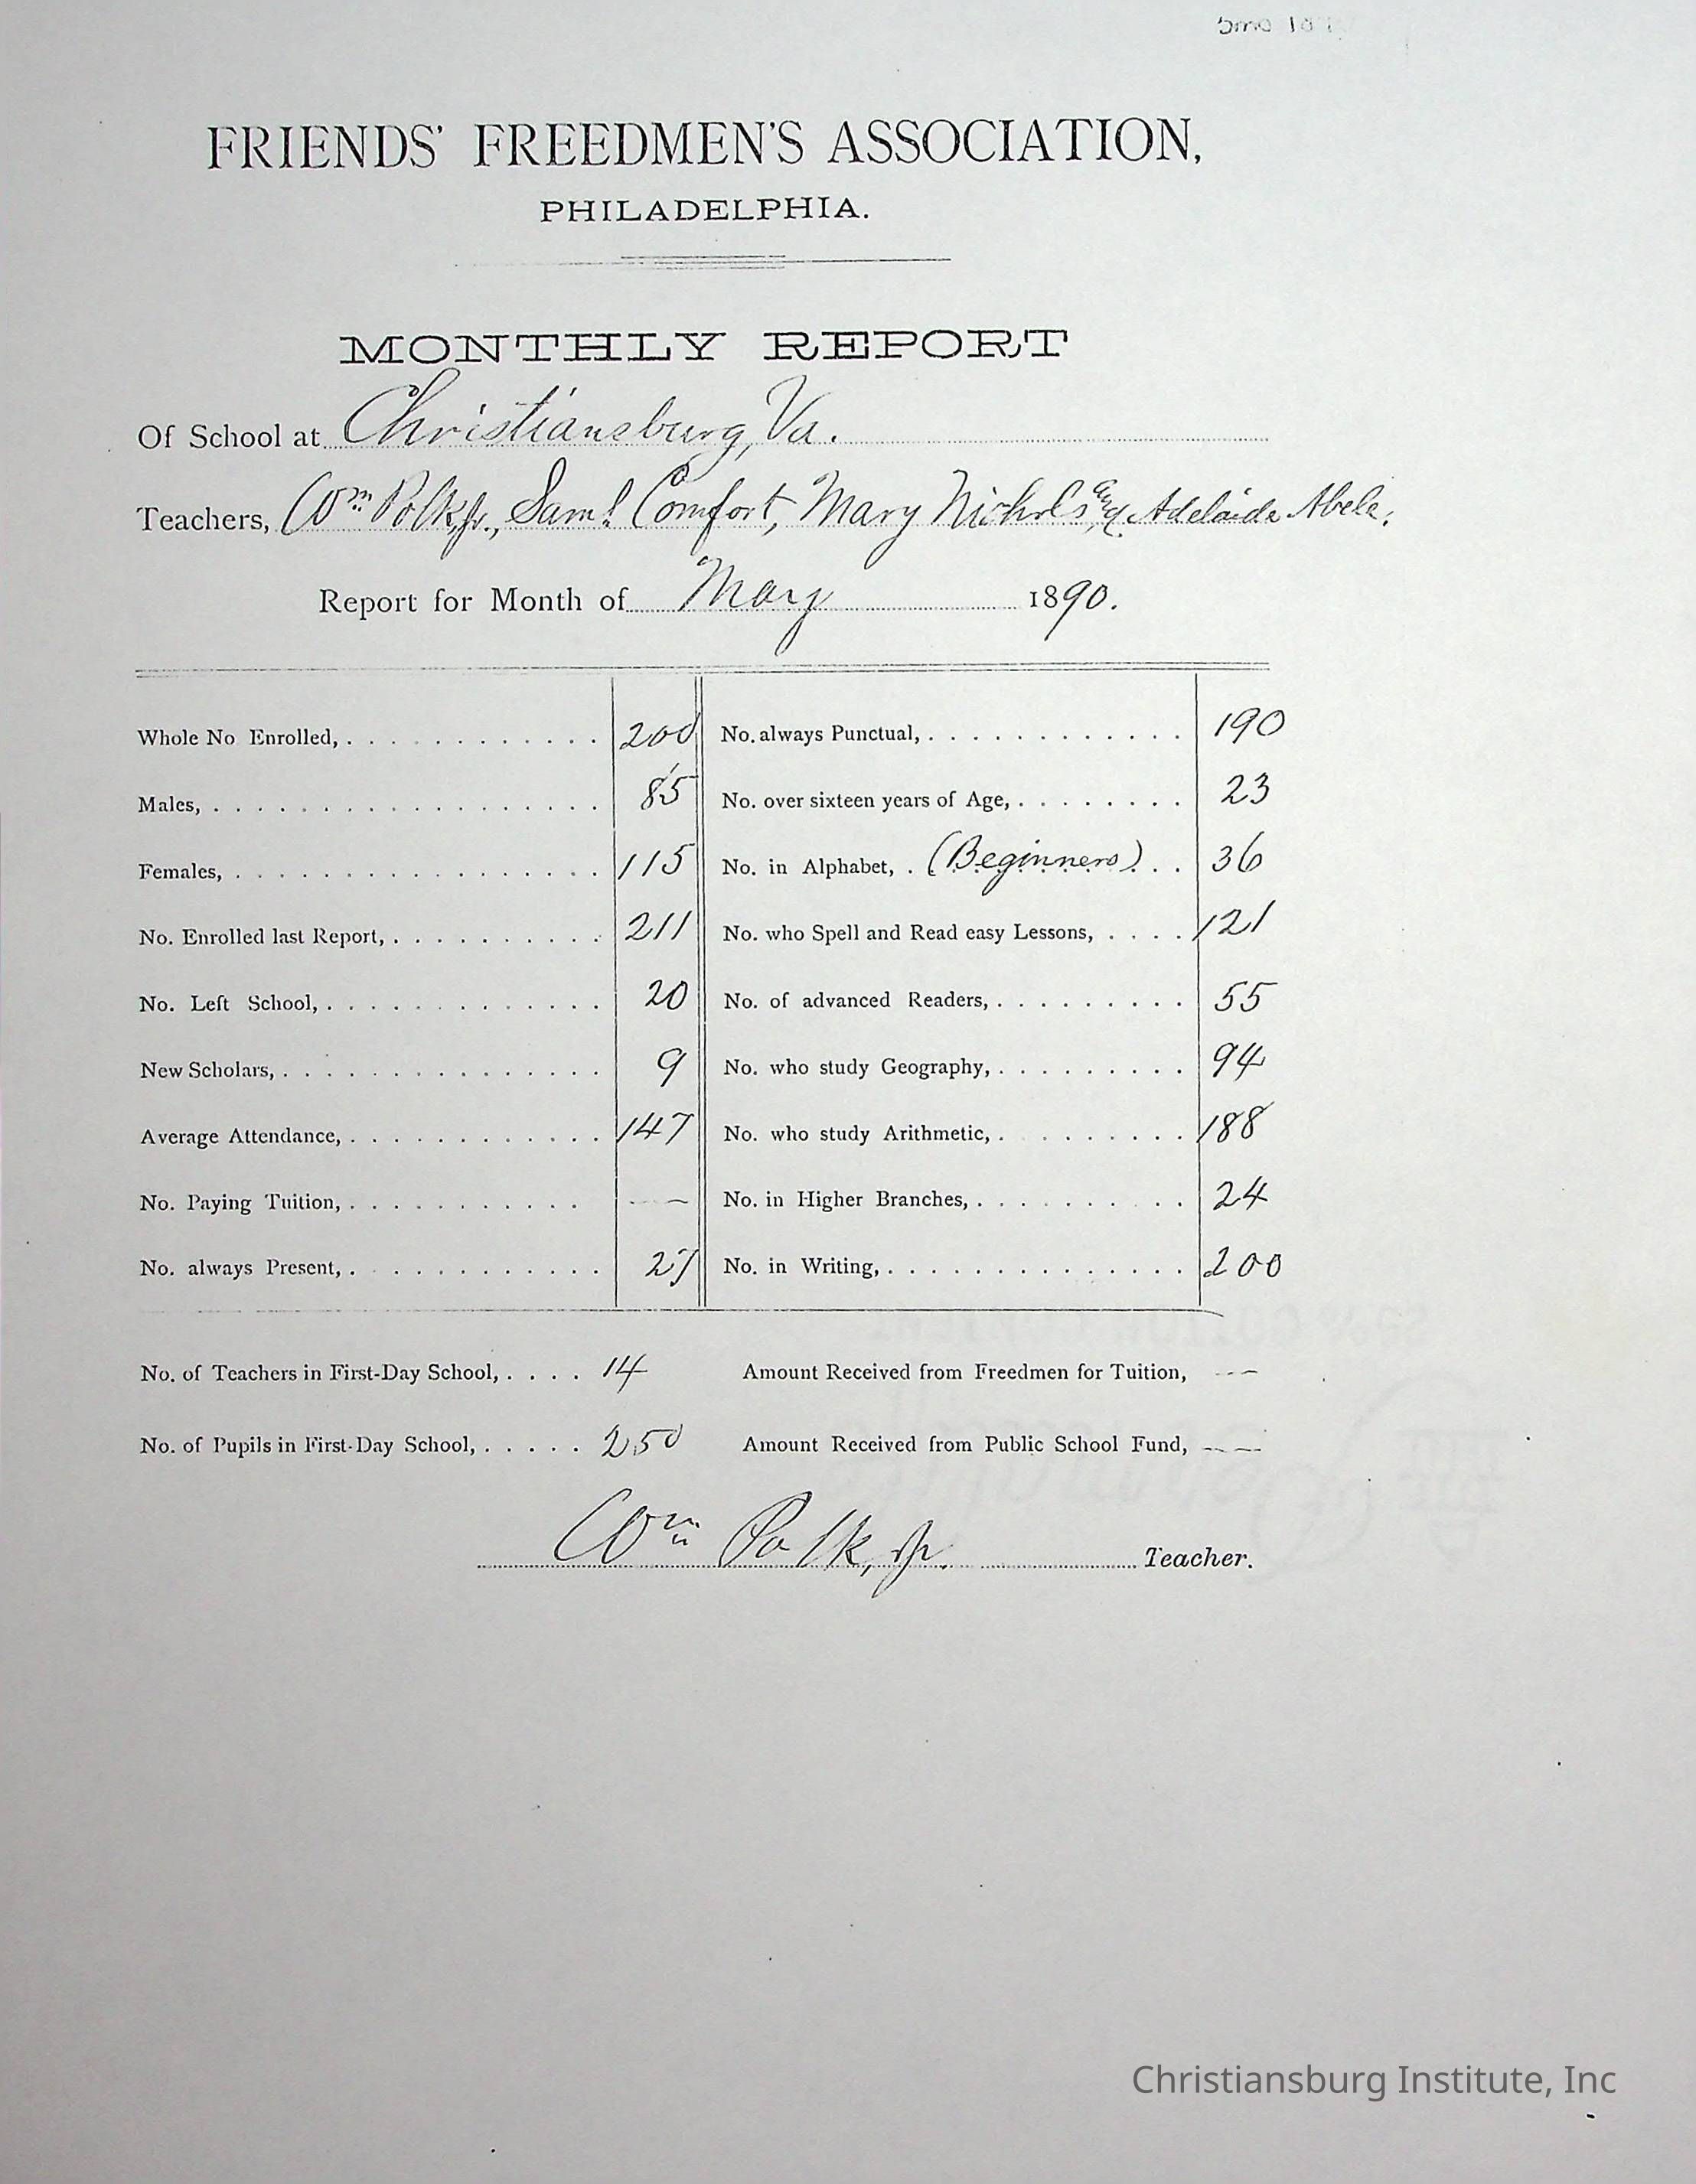 5mo 18
FRIENDS' FREEDMEN'S ASSOCIATION,
PHILADELPHIA.
MONTHLY REPORT
Of School at Christiansburg, Va.
Teachers, Wm Polk, jr., Saml Comfort, Mary Nichols, and Adelaide Abele.
Report for Month of May 1890.
Whole No Enrolled, 200 No. always Punctual, 190
Males, 85 No. over sixteen years of Age, 23
Females, 115 No. in Alphabet, (Beginners) 36
No. Enrolled last Report, 211 No. who Spell and Read easy Lessons, 121
No. Left School, 20 No. of advanced Readers, 55
New Scholars, 9 No. who study Geography, 94
Average Attendance, 147 No. who study Arithmetic, 188
No. Paying Tuition, -- No. in Higher Branches, 24
No. always Present, 27 No. in Writing, 200
No. of Teachers in First-Day School, 14 Amount Received from Freedmen for Tuition, ---
No. of Pupils in First-Day School, 250 Amount Received from Public School Fund, ---
Wm Polk, jr. Teacher.
Christiansburg Institute, Inc